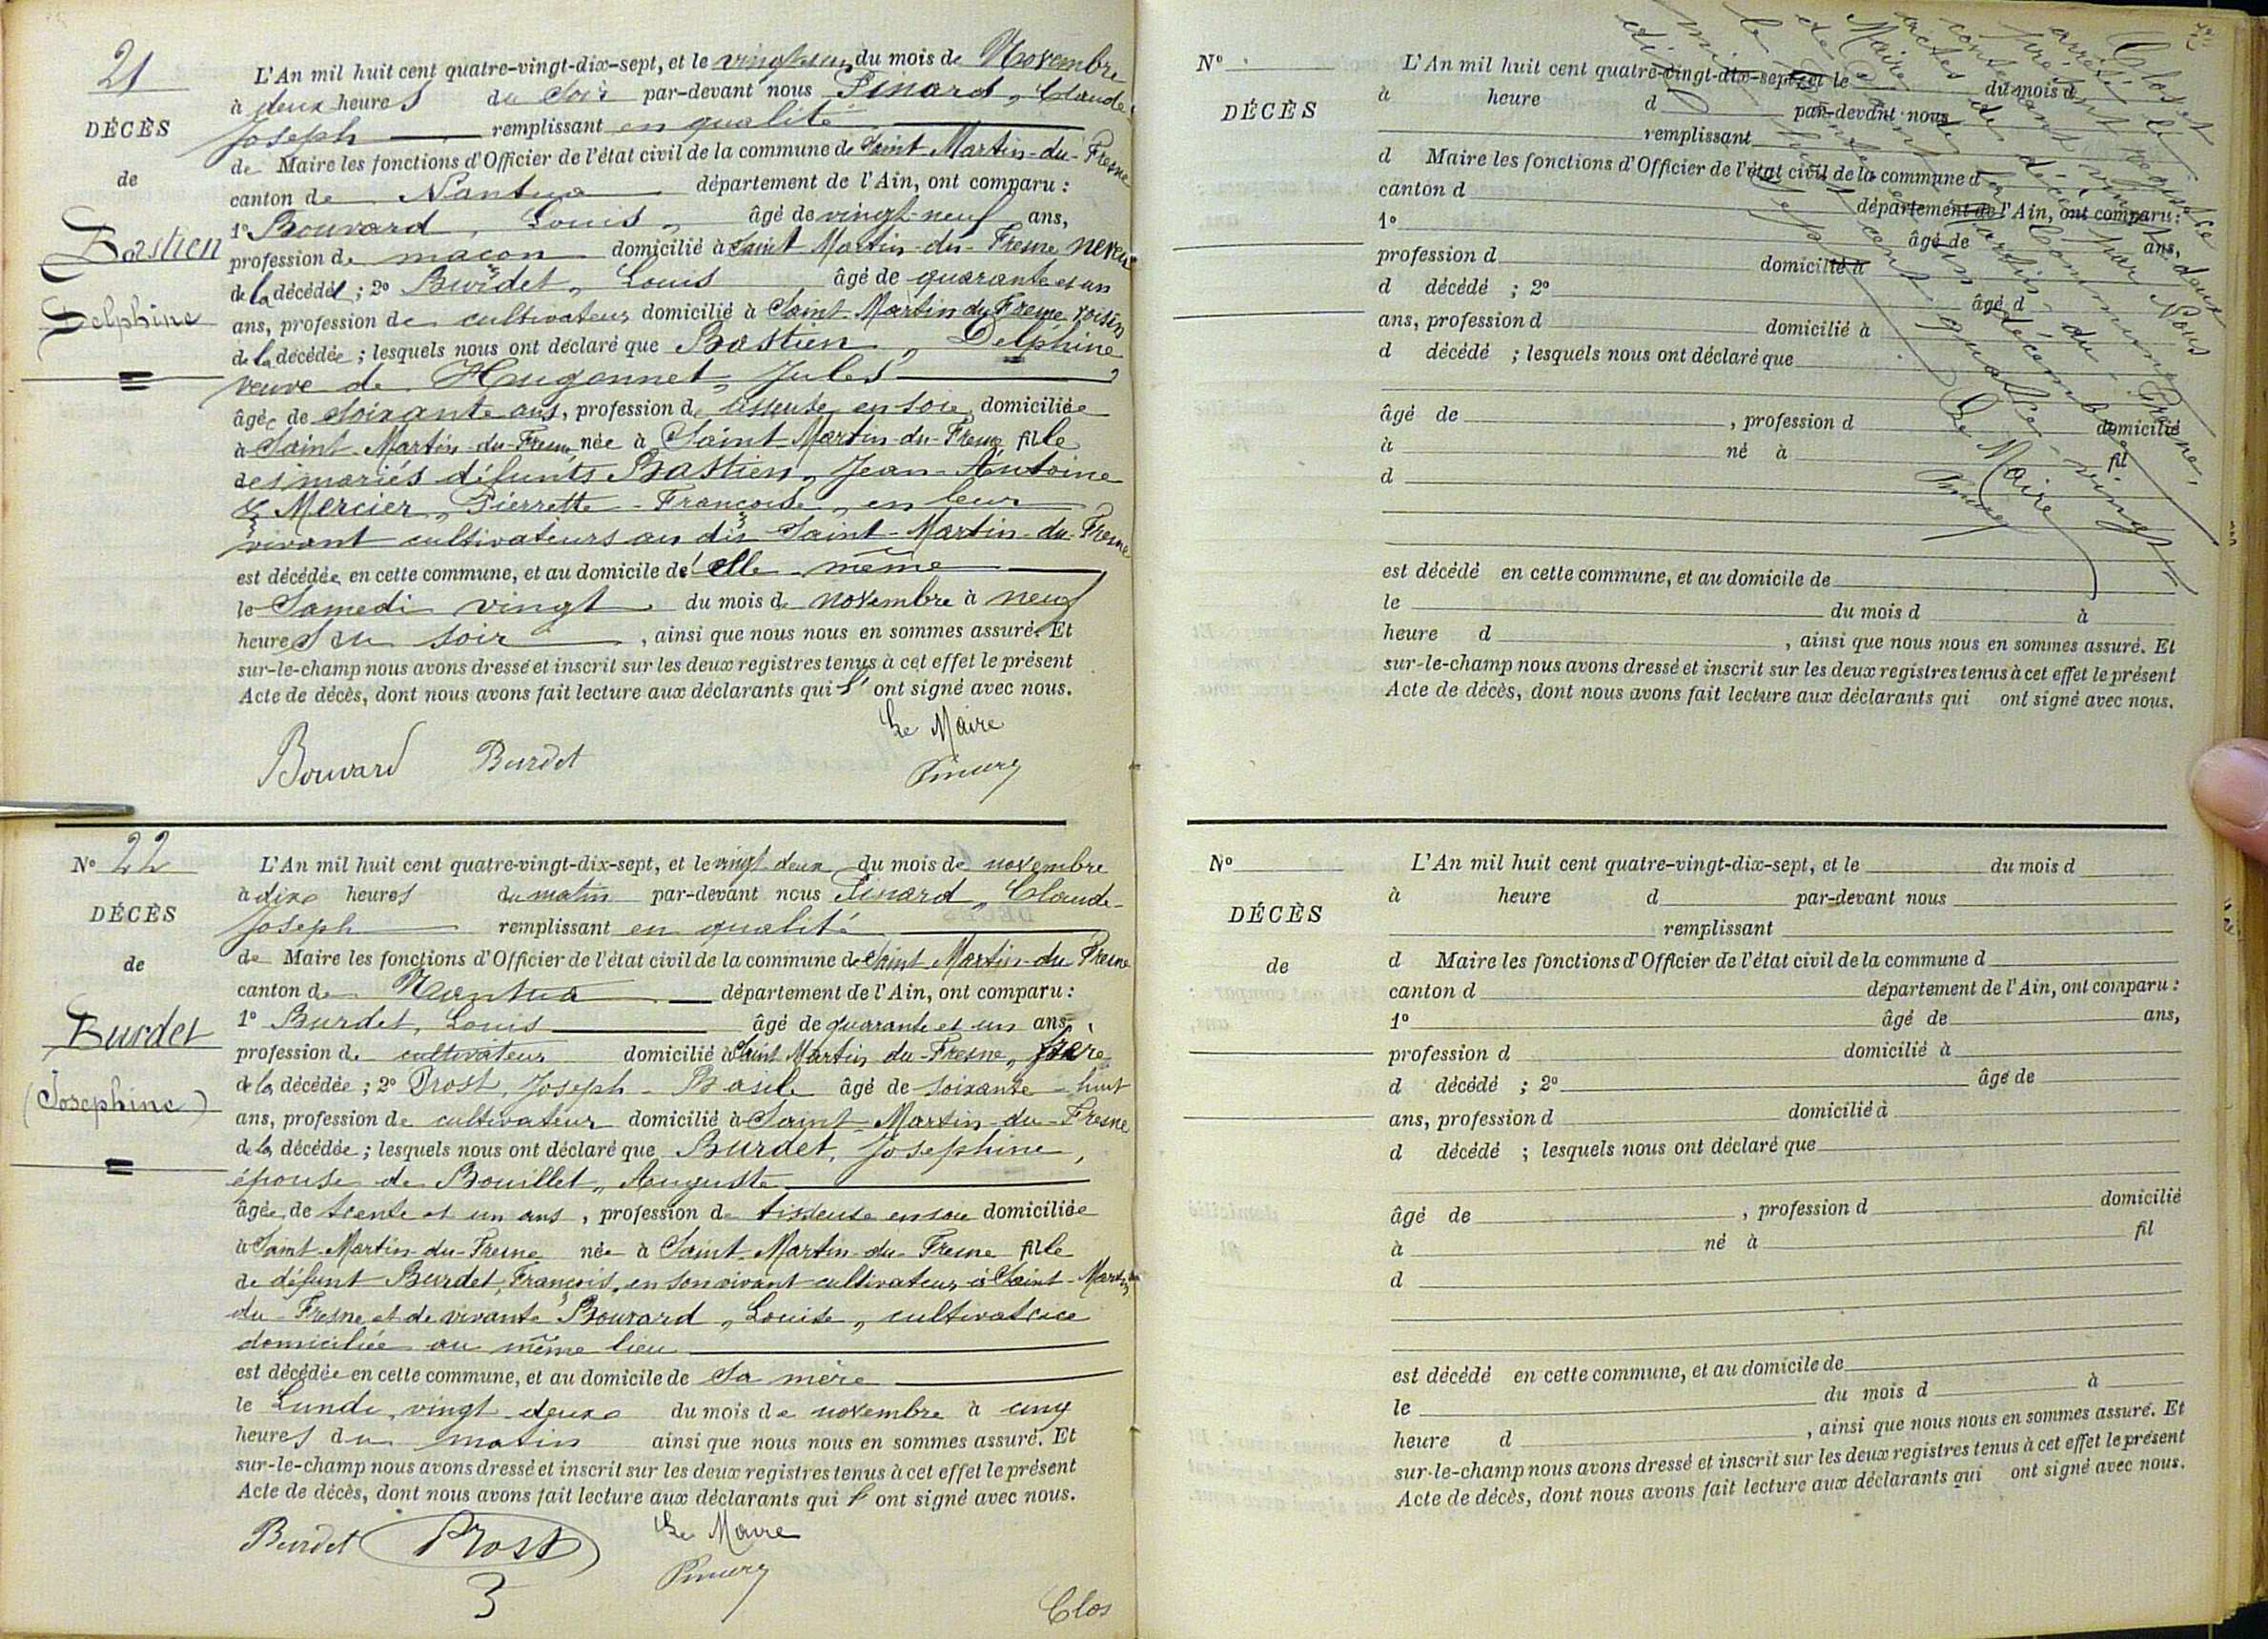 21
DÉCÈS
de
Bastien
Delphine
L'An mil huit cent quatre-vingt-dix-sept, et le vingt-un du mois de Novembre
à deux heures du soir par-devant nous Pinard, Claude-
Joseph remplissant en qualité
de Maire les fonctions d'Officier de l'état civil de la commune de Saint-Martin-du-Fresne
canton de Nantua département de l'Ain, ont comparu :
1º Bouvard, Louis, âgé de vingt-neuf ans,
profession de maçon domicilié à Saint Martin-du-Fresne neveu
de la décédée ; 2º Burdet, Louis âgé de quarante et un
ans, profession de cultivateur domicilié à Saint-Martin du Fresne voisin
de la décédée ; lesquels nous ont déclaré que Bastien, Delphine
veuve de Hugonnet, Jules
âgée de soixante ans, profession de tisseuse en soie domiciliée
à Saint-Martin-du-Fresne née à Saint-Martin-du-Fresne fille
des mariés défunts Bastien, Jean-Antoine
& Mercier, Pierrette-Françoise, en leur
vivant cultivateurs au dit Saint-Martin-du-Fresne
est décédée en cette commune, et au domicile d'elle-même
le Samedi vingt du mois de novembre à neuf
heures du soir, ainsi que nous nous en sommes assuré. Et
sur-le-champ nous avons dressé et inscrit sur les deux registres tenus à cet effet le présent
Acte de décès, dont nous avons fait lecture aux déclarants qui l'ont signé avec nous.
Le Maire
Bouvard Burdet
Nº 22
DÉCÈS
de
Burdet
(Josephine)
L'An mil huit cent quatre-vingt-dix-sept, et le vingt deux du mois de novembre
à dix heures du matin par-devant nous Pinard, Claude-
Joseph remplissant en qualité
de Maire les fonctions d'Officier de l'état civil de la commune de Saint-Martin-du Fresne
canton de Nantua département de l'Ain, ont comparu :
1º Burdet, Louis âgé de quarante et un ans,
profession de cultivateur domicilié à Saint Martin du-Fresne, frère
de la décédée ; 2º Prost, Joseph-Basile âgé de soixante-huit
ans, profession de cultivateur domicilié à Saint-Martin-du-Fresne
de la décédée ; lesquels nous ont déclaré que Burdet, Josephine,
épouse de Bouillet, Auguste
âgée de trente et un ans, profession de tisseuse en soie domiciliée
à Saint-Martin-du-Fresne née à Saint-Martin-du-Fresne fille
de défunt Burdet, François, en son vivant cultivateur à Saint-Martin
du-Fresne et de vivante Bouvard, Louise, cultivatrice
domiciliée au même lieu
est décédée en cette commune, et au domicile de sa mère
le Lundi, vingt-deux du mois de novembre à cinq
heures du matin ainsi que nous nous en sommes assuré. Et
sur-le-champ nous avons dressé et inscrit sur les deux registres tenus à cet effet le présent
Acte de décès, dont nous avons fait lecture aux déclarants qui l'ont signé avec nous.
Burdet Prost Le Maire
Clos
Clos et
arrêté le
présent registre
contenant vingt-deux
actes de décès par Nous
Maire de la Commune
de Saint-Martin-du-Fresne,
le décembre
mil huit cent quatre-vingt-
dix-sept.
Le Maire
Nº
DÉCÈS
L'An mil huit cent quatre-vingt-dix-sept, et le du mois d
à heure d par-devant nous
remplissant
d Maire les fonctions d'Officier de l'état civil de la commune d
canton d département de l'Ain, ont comparu :
1º âgé de ans,
profession d domicilié à
d décédé ; 2º âgé d
ans, profession d domicilié à
d décédé ; lesquels nous ont déclaré que
âgé de , profession d domicilié
à né à fil
d
est décédé en cette commune, et au domicile de
le du mois d à
heure d , ainsi que nous nous en sommes assuré. Et
sur-le-champ nous avons dressé et inscrit sur les deux registres tenus à cet effet le présent
Acte de décès, dont nous avons fait lecture aux déclarants qui ont signé avec nous.
Nº
DÉCÈS
de
L'An mil huit cent quatre-vingt-dix-sept, et le du mois d
à heure d par-devant nous
remplissant
d Maire les fonctions d'Officier de l'état civil de la commune d
canton d département de l'Ain, ont comparu :
1º âgé de ans,
profession d domicilié à
d décédé ; 2º âgé de
ans, profession d domicilié à
d décédé ; lesquels nous ont déclaré que
âgé de , profession d domicilié
à né à fil
d
est décédé en cette commune, et au domicile de
le du mois d à
heure d , ainsi que nous nous en sommes assuré. Et
sur-le-champ nous avons dressé et inscrit sur les deux registres tenus à cet effet le présent
Acte de décès, dont nous avons fait lecture aux déclarants qui ont signé avec nous.